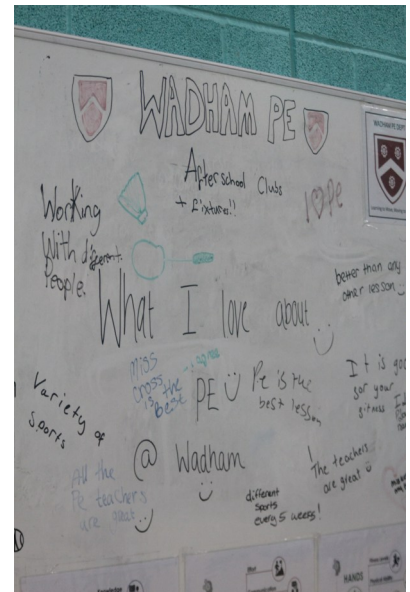 WADHAM PE
WADHAM PE DEPT
Afterschool Clubs
+ fixtures!!
I ♡ Pe
Working
With different
People.
better than any
other lesson
What I love about
Miss
Cross is the
best
PE
Pe is the
best lesson
It is good
for your
fitness
Variety of
Sports
@ Wadham
The teachers
are great
All the
Pe teachers
are great
different
sports
every 5 weeks!
HANDS